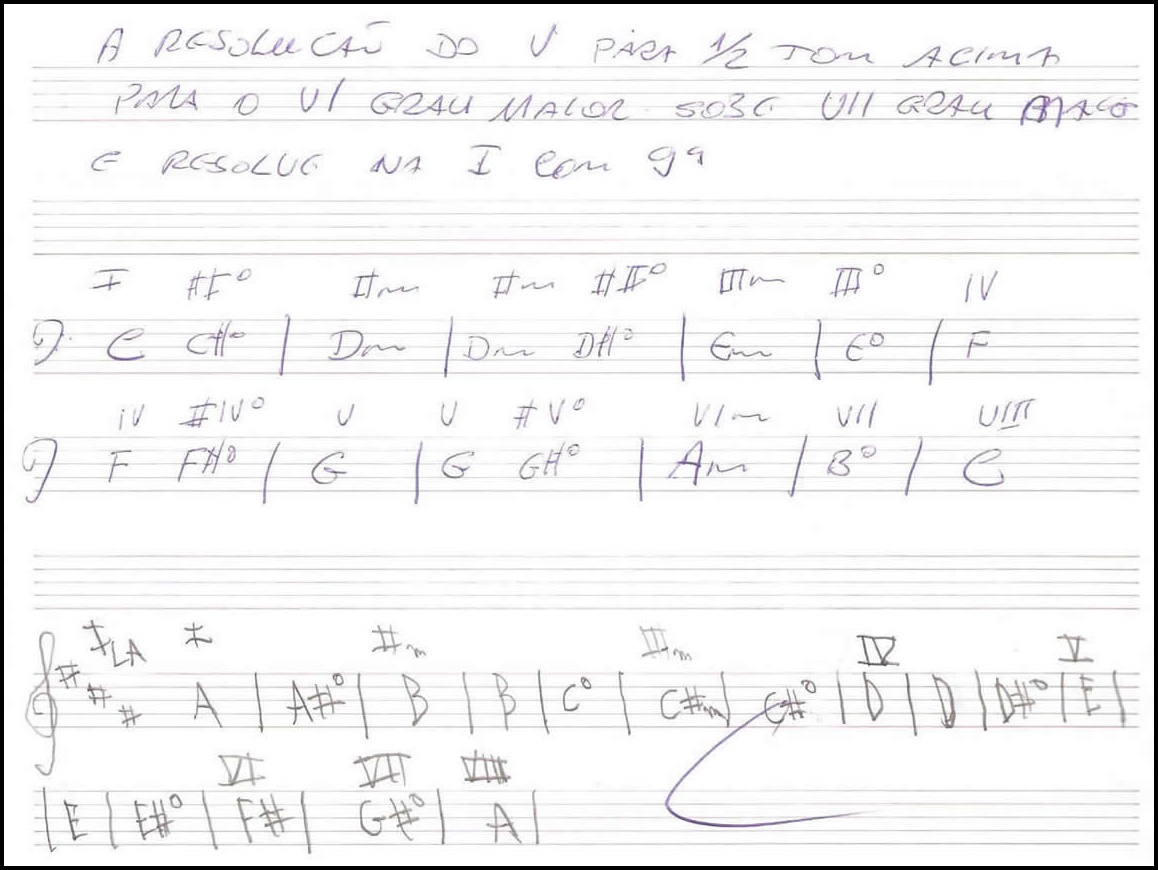 A RESOLUÇÃO DO V PARA 1/2 TOM ACIMA
PARA O VI GRAU MAIOR SOBE VII GRAU
E RESOLVE NA I com 9ª
I #I° IIm IIm #II° IIIm III° IV
C C#° | Dm | Dm D#° | Em | E° | F
IV #IV° V V #V° VIm VII VIII
F F#° | G | G G#° | Am | B° | C
I LA I IIm IIIm IV V
# # # A | A#° | B | B | C° | C#m | C#° | D | D | D#° | E |
VI VII VIII
| E | E#° | F# | G#° | A |